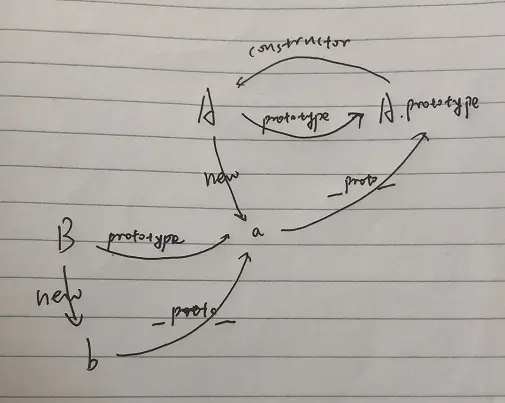 constructor
A prototype A.prototype
new
_proto_
B prototype a
new
_proto_
b